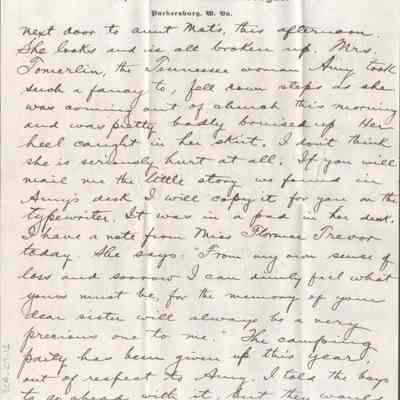 Parkersburg, W. Va.
next door to aunt Mat's, this afternoon.
She looks and is all broken up. Mrs.
Tomerlin, the Tennessee woman Amy took
such a fancy to, fell down steps as she
was coming out of church this morning
and was pretty badly bruised up. Her
heel caught in her skirt. I don't think
she is seriously hurt at all. If you will
mail me the little story we found in
Amy's desk I will copy it for you on the
typewriter. It was in a pad in her desk.
I have a note from Miss Florence Trevor
today. She says: "From my own sense of
loss and sorrow I can dimly feel what
yours must be, for the memory of your
dear sister will always be a very
precious one to me." The camping
party has been given up this year,
out of respect to Amy. I told the boys
to go ahead with it, but they would